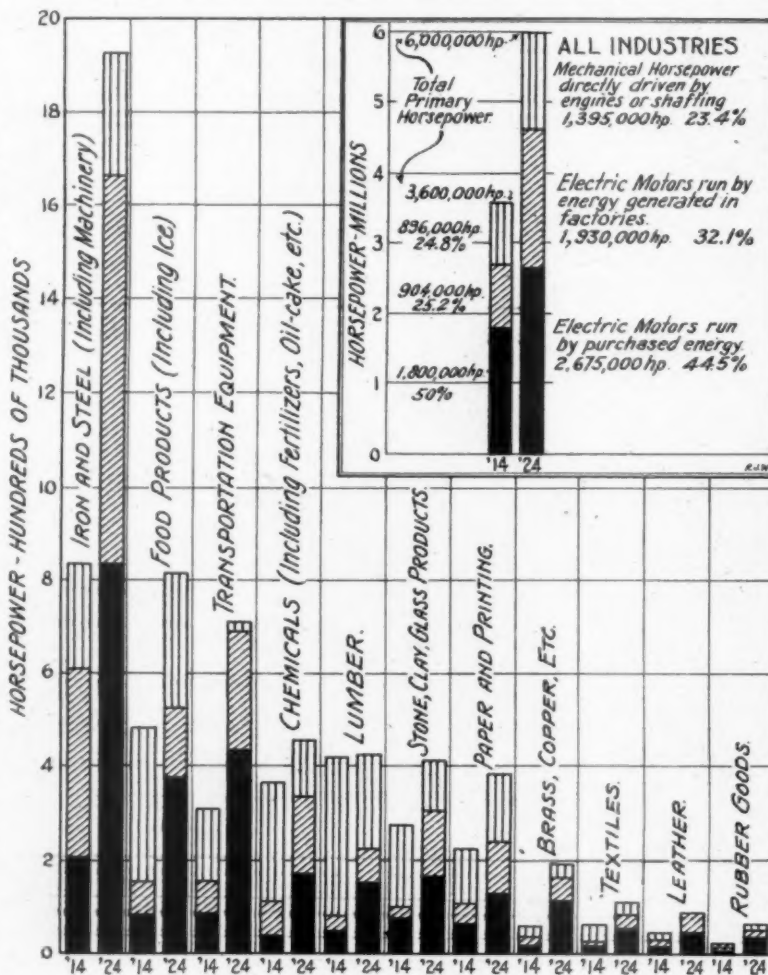 HORSEPOWER - HUNDREDS OF THOUSANDS
20
18
16
14
12
10
8
6
4
2
0
IRON AND STEEL (Including Machinery)
FOOD PRODUCTS (Including Ice)
TRANSPORTATION EQUIPMENT.
CHEMICALS (Including Fertilizers, Oil-cake, etc.)
LUMBER.
STONE, CLAY, GLASS PRODUCTS.
PAPER AND PRINTING.
BRASS, COPPER, ETC.
TEXTILES.
LEATHER.
RUBBER GOODS.
'14 '24 '14 '24 '14 '24 '14 '24 '14 '24 '14 '24 '14 '24 '14 '24 '14 '24 '14 '24 '14 '24
HORSEPOWER-MILLIONS
6
5
4
3
2
1
0
6,000,000hp.
Total
Primary
Horsepower.
3,600,000hp.
896,000hp.
24.8%
904,000hp.
25.2%
1,800,000hp.
50%
'14 '24
ALL INDUSTRIES
Mechanical Horsepower
directly driven by
engines or shafting
1,395,000hp. 23.4%
Electric Motors run by
energy generated in
factories.
1,930,000hp. 32.1%
Electric Motors run
by purchased energy.
2,675,000hp. 44.5%